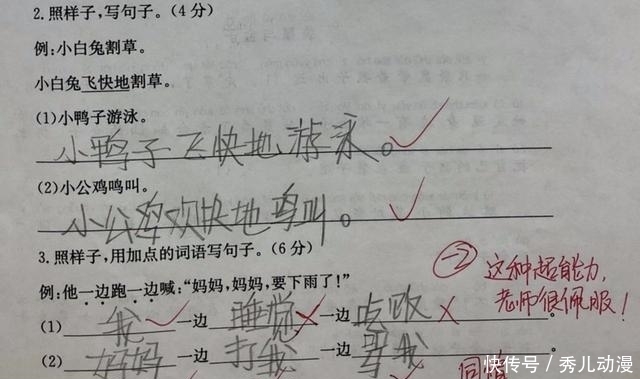 2.照样子,写句子。(4分)
例:小白兔割草。
小白兔飞快地割草。
(1)小鸭子游泳。
小鸭子飞快地游泳。
(2)小公鸡鸣叫。
小公鸡欢快地鸣叫。
3.照样子,用加点的词语写句子。(6分)
例:他一边跑一边喊:“妈妈,妈妈,要下雨了!”
(1) 我 一边 睡觉 一边
(2) 妈妈 一边 打我 一边 骂我
-2
这种超能力,
老师很佩服!
快传号/秀儿动漫